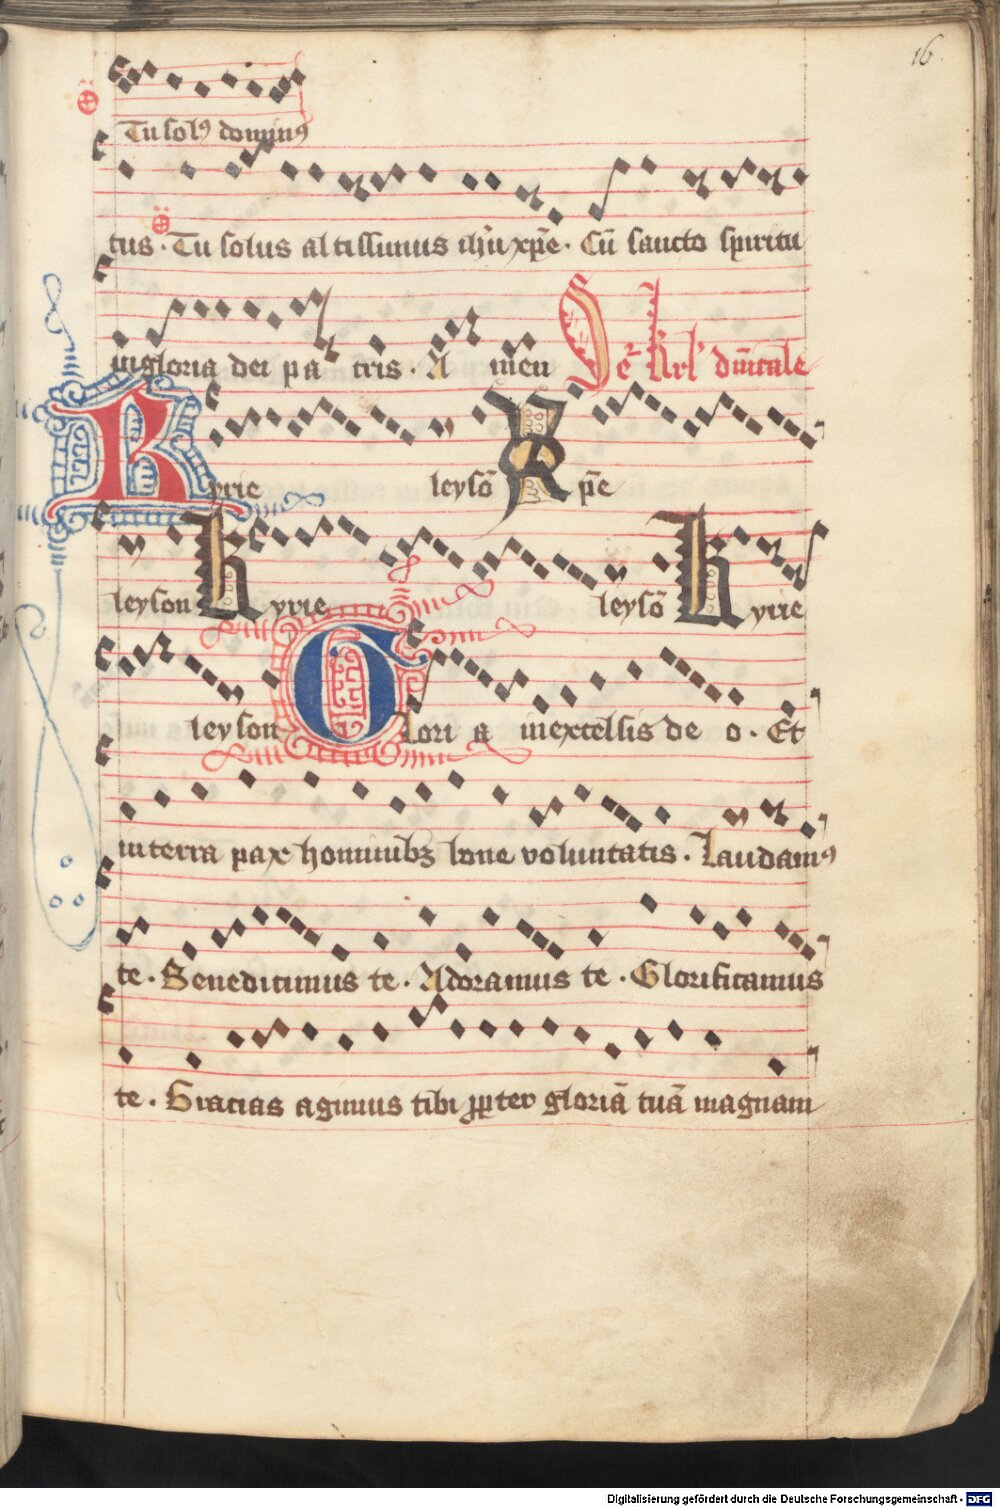 16
Tu solꝰ dominꝰ
tus · Tu solus altissimus ih̄u xp̄e · Cū sancto spiritu
in gloria dei pa tris · A men
d̄nicale
Kyrie leysō Xp̄e
leyson Kyrie leysō Kyrie
leyson Glori a in excelsis de o · Et
in terra pax hominibꝫ bone voluntatis · Laudamꝰ
te · Benedicimus te · Adoramus te · Glorificamus
te · Gracias agimus tibi ꝓpter gloriā tuā magnam
Digitalisierung gefördert durch die Deutsche Forschungsgemeinschaft - DFG